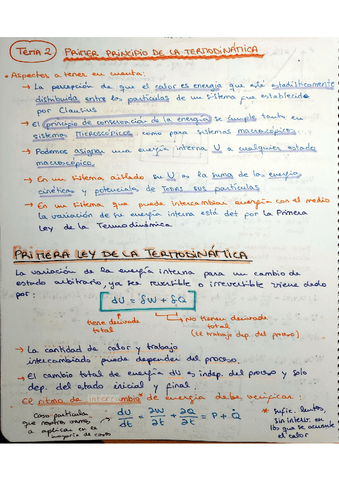 TEMA 2 PRIMER PRINCIPIO DE LA TERMODINÁMICA
• Aspectos a tener en cuenta:
→ La percepción de que el calor es energía que está estadísticamente
distribuida entre las partículas de un sistema fue establecida
por Clausius
→ El principio de conservación de la energía se cumple tanto en
sistemas MICROSCÓPICOS como para sistemas macroscópicos.
→ Podemos asignar una energía interna U a cualquier estado
macroscópico.
→ En un sistema aislado su U es la suma de las energías
cinéticas y potenciales de TODAS sus partículas
→ En un sistema que puede intercambiar energía con el medio
la variación de su energía interna está det por la Primera
Ley de la Termodinámica
PRIMERA LEY DE LA TERMODINÁMICA
La variación de la energía interna para un cambio de
estado arbitrario, ya sea reversible o irreversible viene dado
por:
dU = δW + δQ
tiene derivada
total
No tienen derivada
total
(El trabajo dep. del proceso)
→ La cantidad de calor y trabajo
intercambiado puede depender del proceso.
→ El cambio total de energía dU es indep. del proceso y solo
dep. del estado inicial y final.
El ritmo de intercambio* de energía debe verificar:
Caso particular
que nosotros vamos
a aplicar en la
mayoría de casos
dU/dt = ∂W/∂t + ∂Q/∂t = P + Q̇
* sufic. lentos,
sin interv. en
los que se aumente
el calor